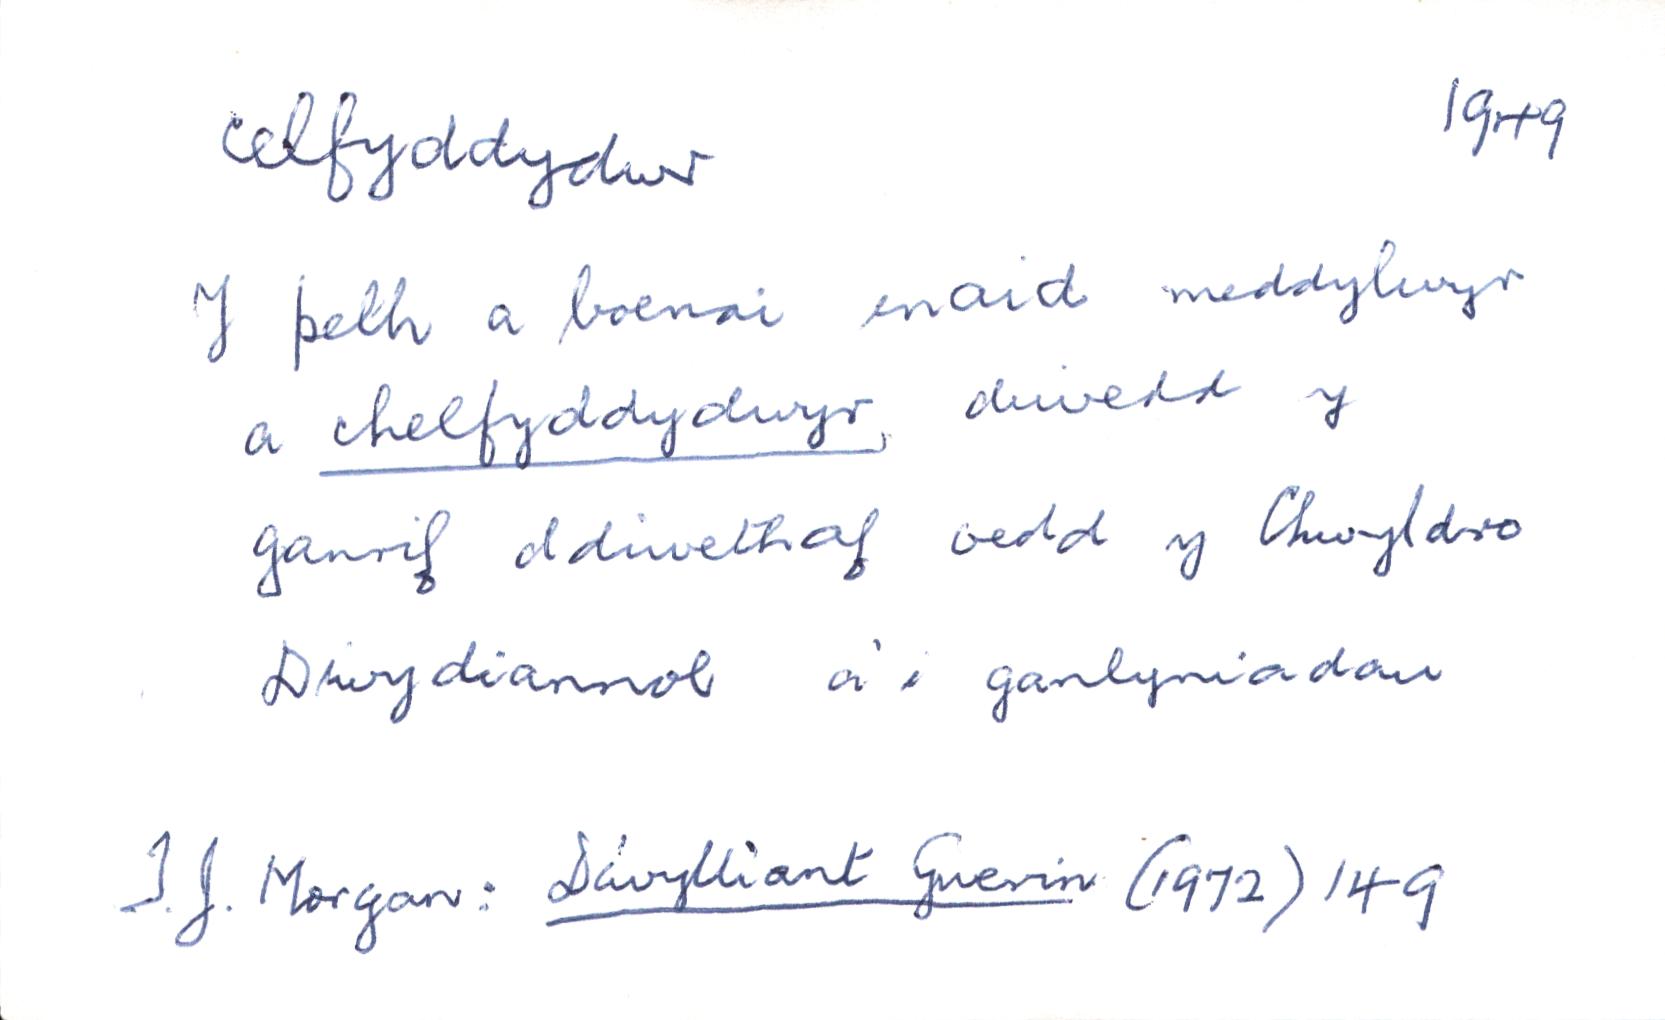 celfyddydwr 1949
Y peth a boenai enaid meddylwyr
a chelfyddydwyr, diwedd y
ganrif ddiwethaf oedd y Chwyldro
Diwydiannol a'i ganlyniadau
T. J. Morgan: Diwylliant Gwerin (1972) 149